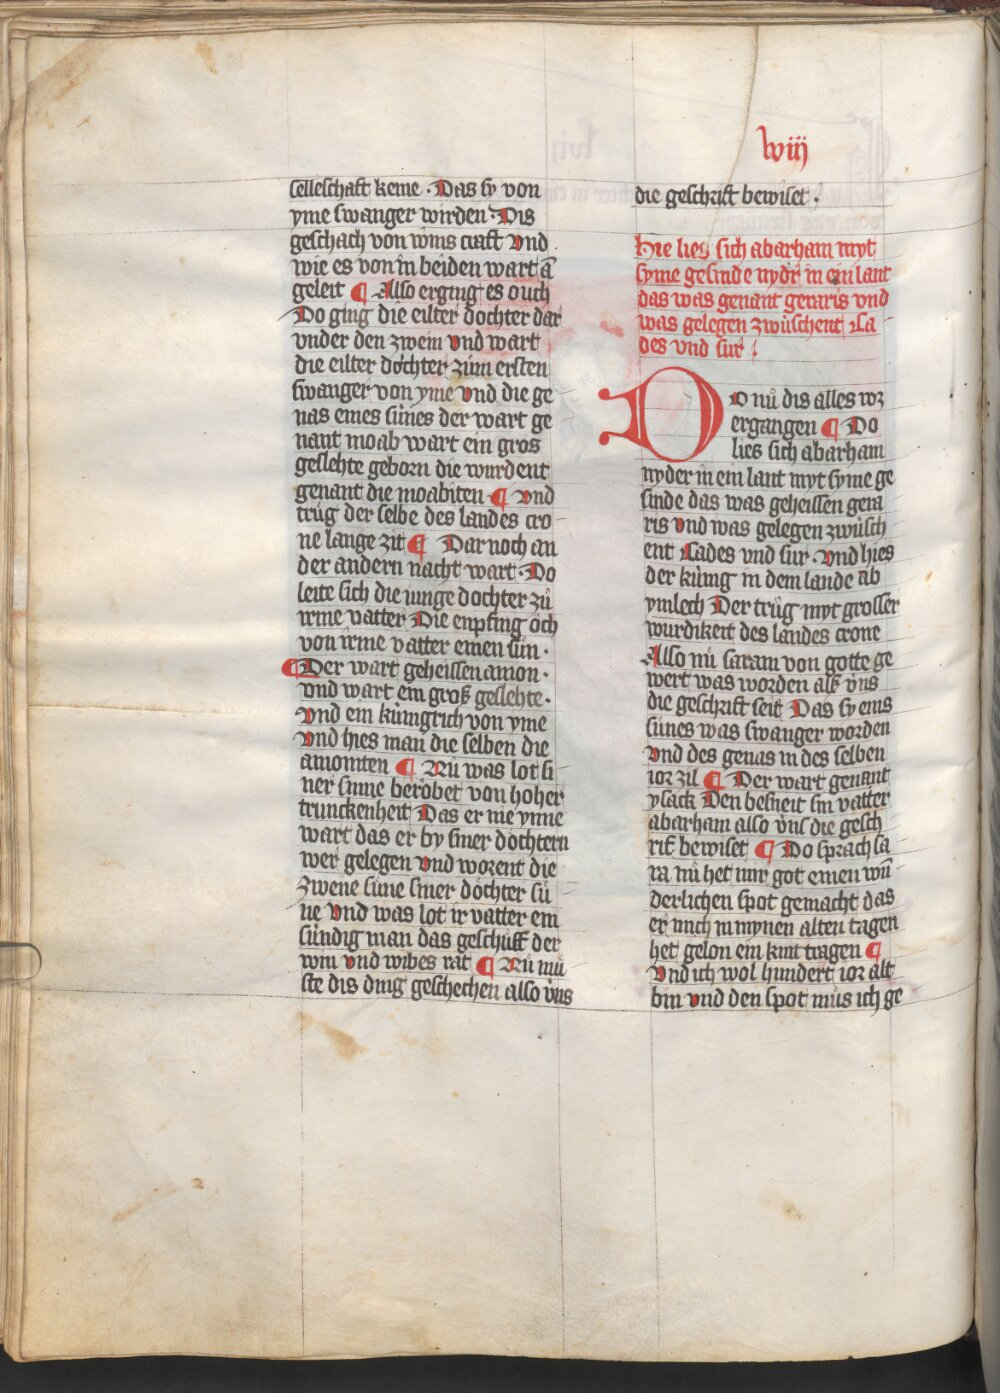 lviij
selleschaft keme · Das sy von
yme swanger wirden · Dis
geschach von wins craft Vnd
wie es von in beiden wart ā
geleit ¶ Also erging es ouch
Do ging die eilter dochter dar
vnder den zwein vnd wart
die eilter döchter zům ersten
swanger von yme vnd die ge
nas eines sůnes der wart ge
nant moab wart ein gros
geslehte geborn die wurdent
genant die moabiten ¶ vnd
trůg der selbe des landes cro
ne lange zit ¶ Dar noch an
der andern nacht wart · Do
leite sich die iunge dochter zů
irme vatter Die enpfing öch
von irme vatter einen sůn ·
¶ Der wart geheissen amon ·
vnd wart ein groß geslehte ·
Vnd ein kůnigrich von yme
Vnd hies man die selben die
amoniten ¶ Nů was lot si
ner sinne beröbet von hoher
trunckenheit Das er nie ynne
wart das er by siner döchtern
wer gelegen vnd worent die
zwene sůne siner döchter sů
ne Vnd was lot ir vatter ein
sůndig man das geschůff der
win vnd wibes rät ¶ Nů mů
ste dis ding geschechen also vns
die geschrift bewiset ·
Hie lies sich abarham myt
syme gesinde nydr in ein lant
das was genant geraris vnd
was gelegen zwůschent Ca
des vnd sur
DO nů dis alles wz
ergangen ¶ Do
lies sich abarham
nyder in ein lant myt syme ge
sinde das was geheissen gera
ris vnd was gelegen zwůsch
ent Cades vnd sur · Vnd hies
der kůnig in dem lande ab
ymlech Der trůg myt grosser
wurdikeit des landes crone
Also nů saram von gotte ge
wert was worden alß vns
die geschrift seit Das sy eins
sůnes was swanger worden
Vnd des genas in des selben
ior zil ¶ Der wart genant
ysack Den besneit sin vatter
abarham also vns die gesch
rift bewiset ¶ Do sprach sa
ra nů het mir got einen wů
derlichen spot gemacht das
er mich in mynen alten tagen
het gelon ein kint tragen ¶
Vnd ich wol hundert ior alt
bin vnd den spot můs ich ge